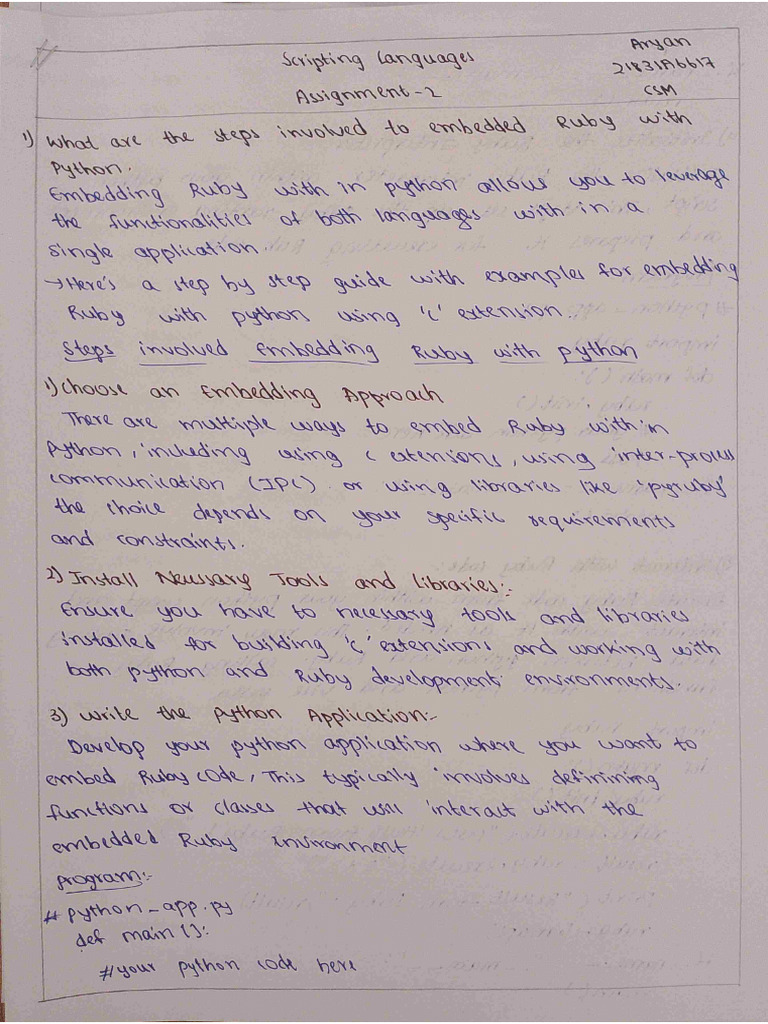 Scripting Languages
Aryan
21831A6617
Assignment-2
CSM
1) What are the steps involved to embedded Ruby with
Python.
Embedding Ruby with in python allows you to leverage
the functionalities of both languages with in a
single application.
→ Here's a step by step guide with examples for embedding
Ruby with python using 'c' extension.
Steps involved Embedding Ruby with python
1) Choose an Embedding Approach
There are multiple ways to embed Ruby with in
Python, including using c extensions, using inter-process
communication (IPC) or using libraries like 'pyruby'
the choice depends on your specific requirements
and constraints.
2) Install Necessary Tools and libraries:-
Ensure you have to necessary tools and libraries
installed for building 'c' extensions and working with
both python and Ruby development environments.
3) Write the Python Application:-
Develop your python application where you want to
embed Ruby code, This typically involves definining
functions or classes that will interact with the
embedded Ruby Environment
program:-
# python_app.py
def main():
#your python code here